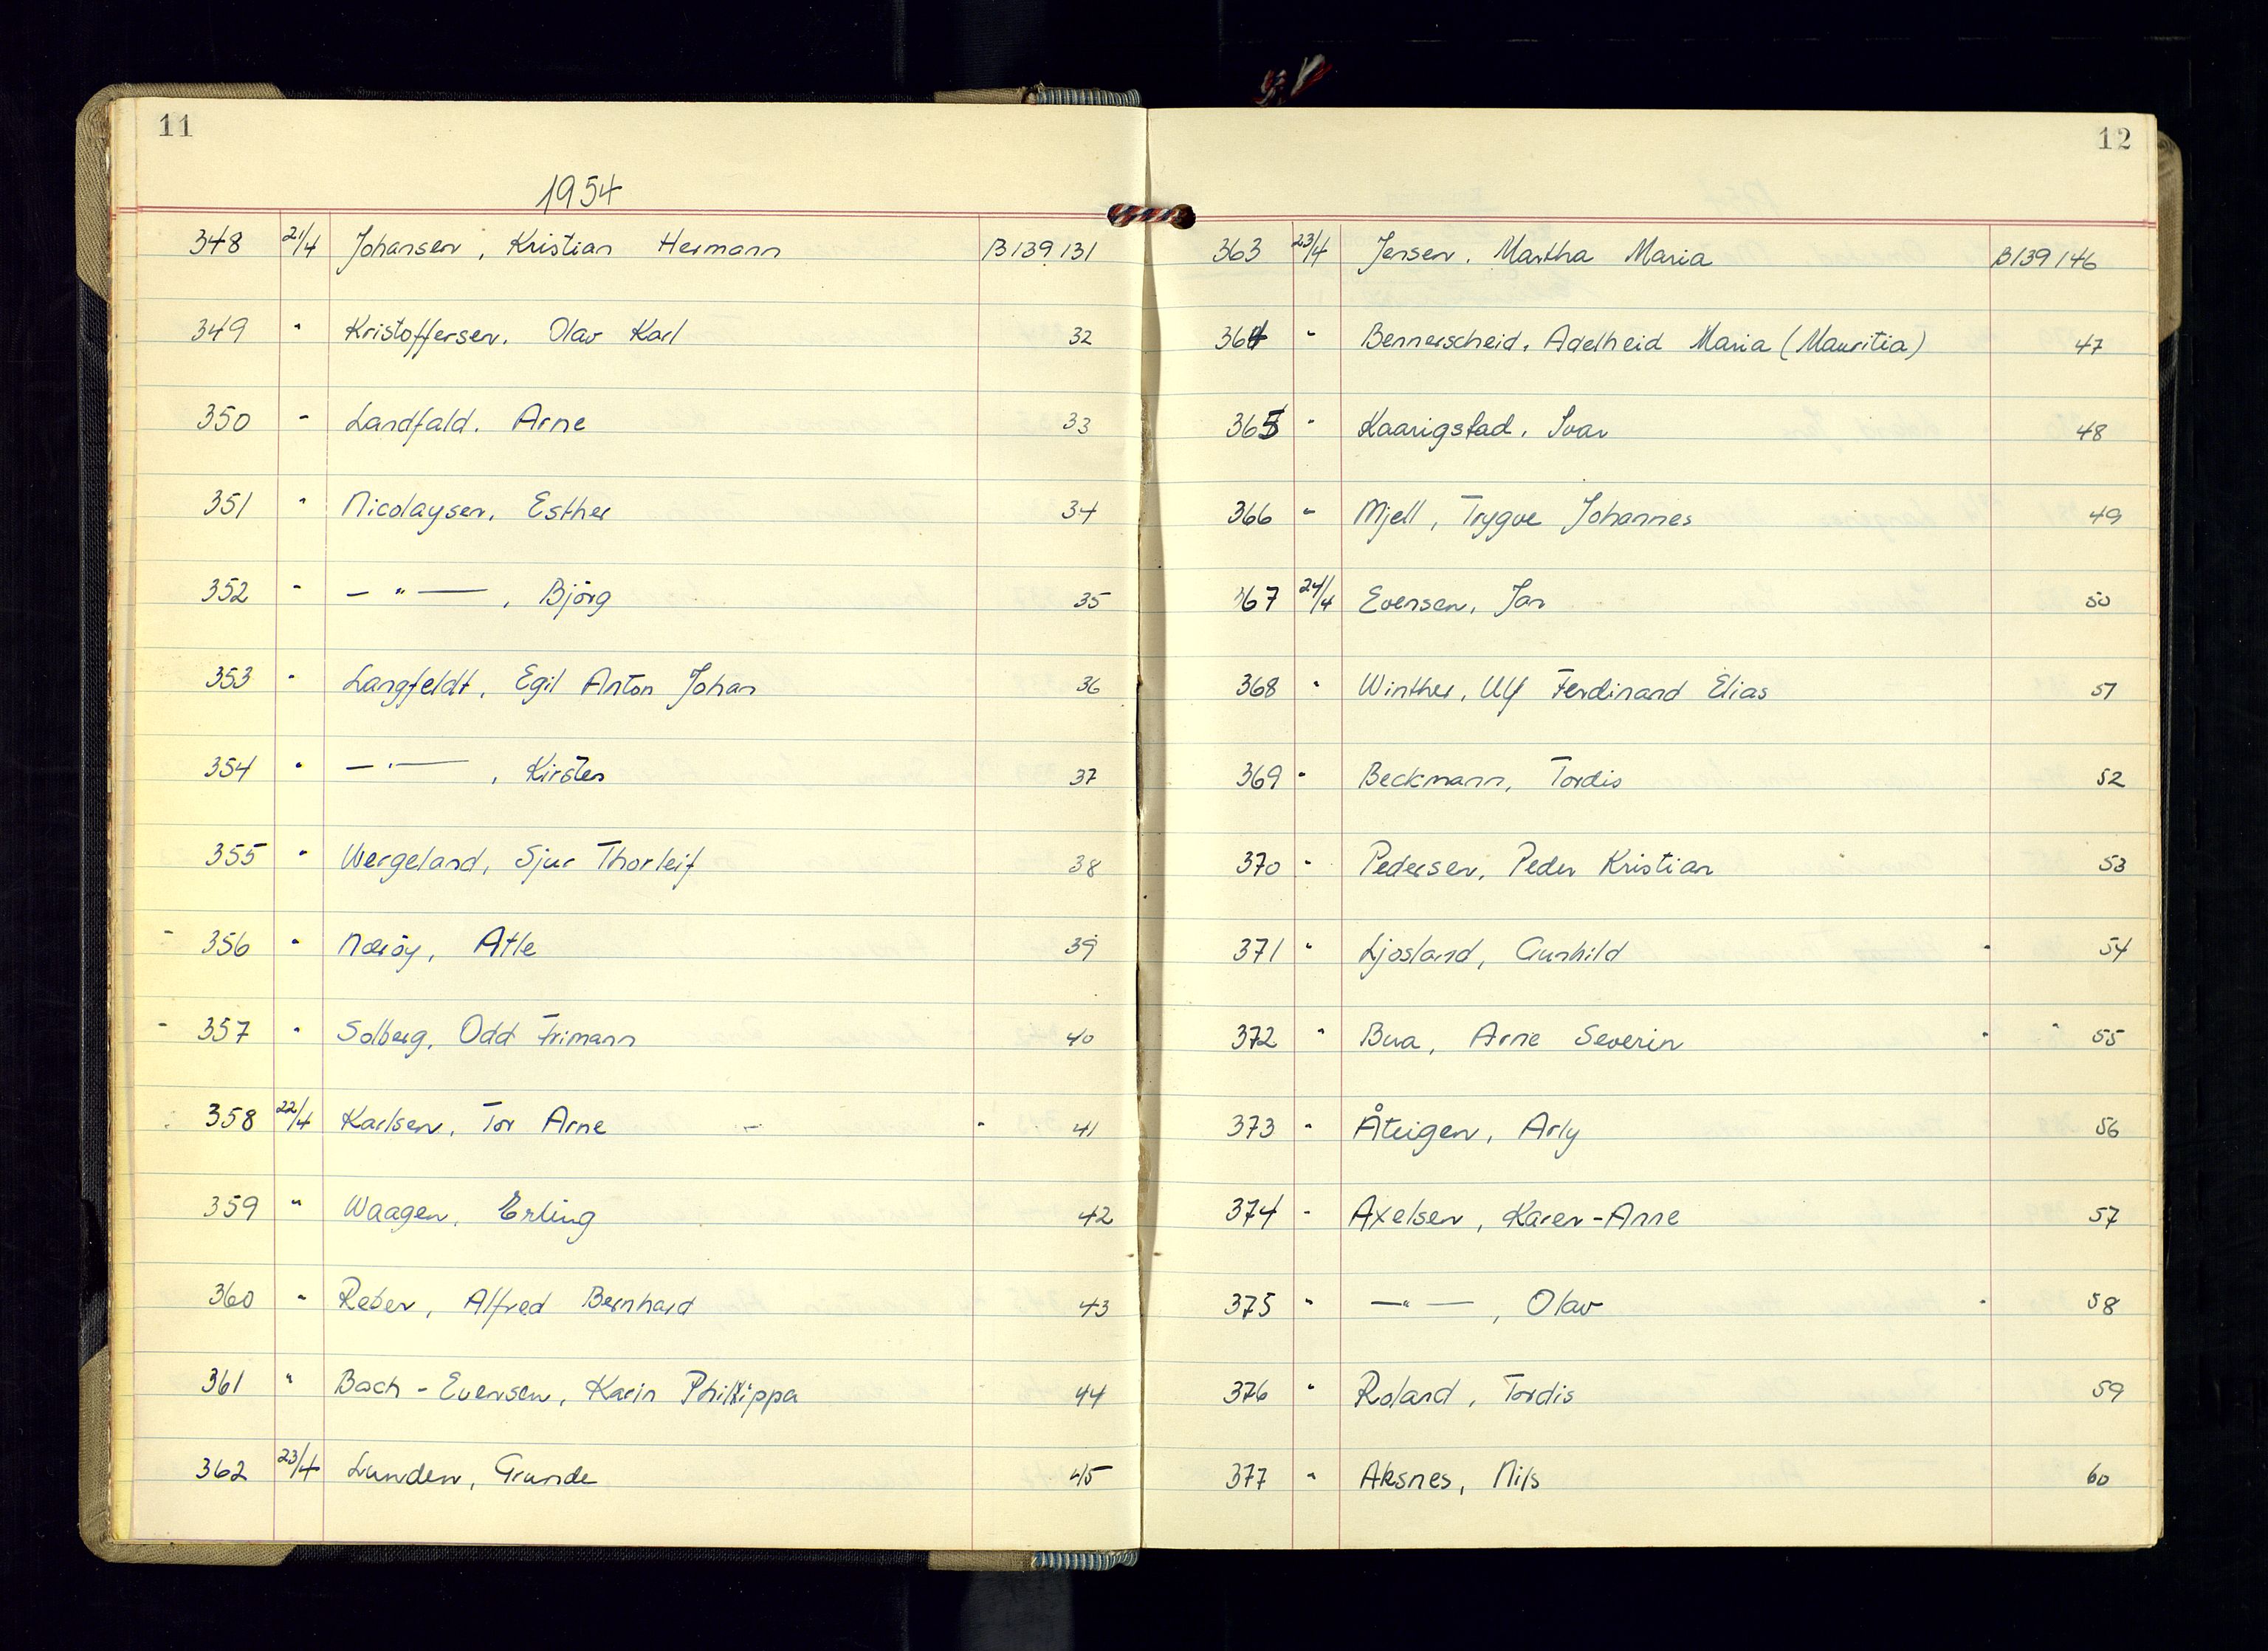 11
1954
348 21/4 Johansen, Kristian Hermann B139131
349 " Kristoffersen, Olav Karl 32
350 " Landfald, Arne 33
351 " Nicolaysen, Esther 34
352 " — " —, Björg 35
353 " Langfeldt, Egil Anton Johan 36
354 " — " —, Kirsten 37
355 " Wergeland, Sjur Thorleif 38
356 " Næröy, Atle 39
357 " Solberg, Odd Frimann 40
358 22/4 Karlsen, Tor Arne 41
359 " Waagen, Erling 42
360 " Reber, Alfred Bernhard 43
361 " Bach-Evensen, Karin Philippa 44
362 23/4 Lunden, Grunde 45
12
363 23/4 Jensen, Martha Maria B139146
364 " Bennerscheid, Adelheid Maria (Mauritia) 47
365 " Kaarigstad, Ivar 48
366 " Mjell, Trygve Johannes 49
367 24/4 Evensen, Jan 50
368 " Winther, Ulf Ferdinand Elias 51
369 " Beckmann, Tordis 52
370 " Pedersen, Peder Kristian 53
371 " Ljosland, Gunhild 54
372 " Bua, Arne Severin 55
373 " Åteigen, Arly 56
374 " Axelsen, Karen-Anne 57
375 " — " —, Olav 58
376 " Roland, Tordis 59
377 " Aksnes, Nils 60